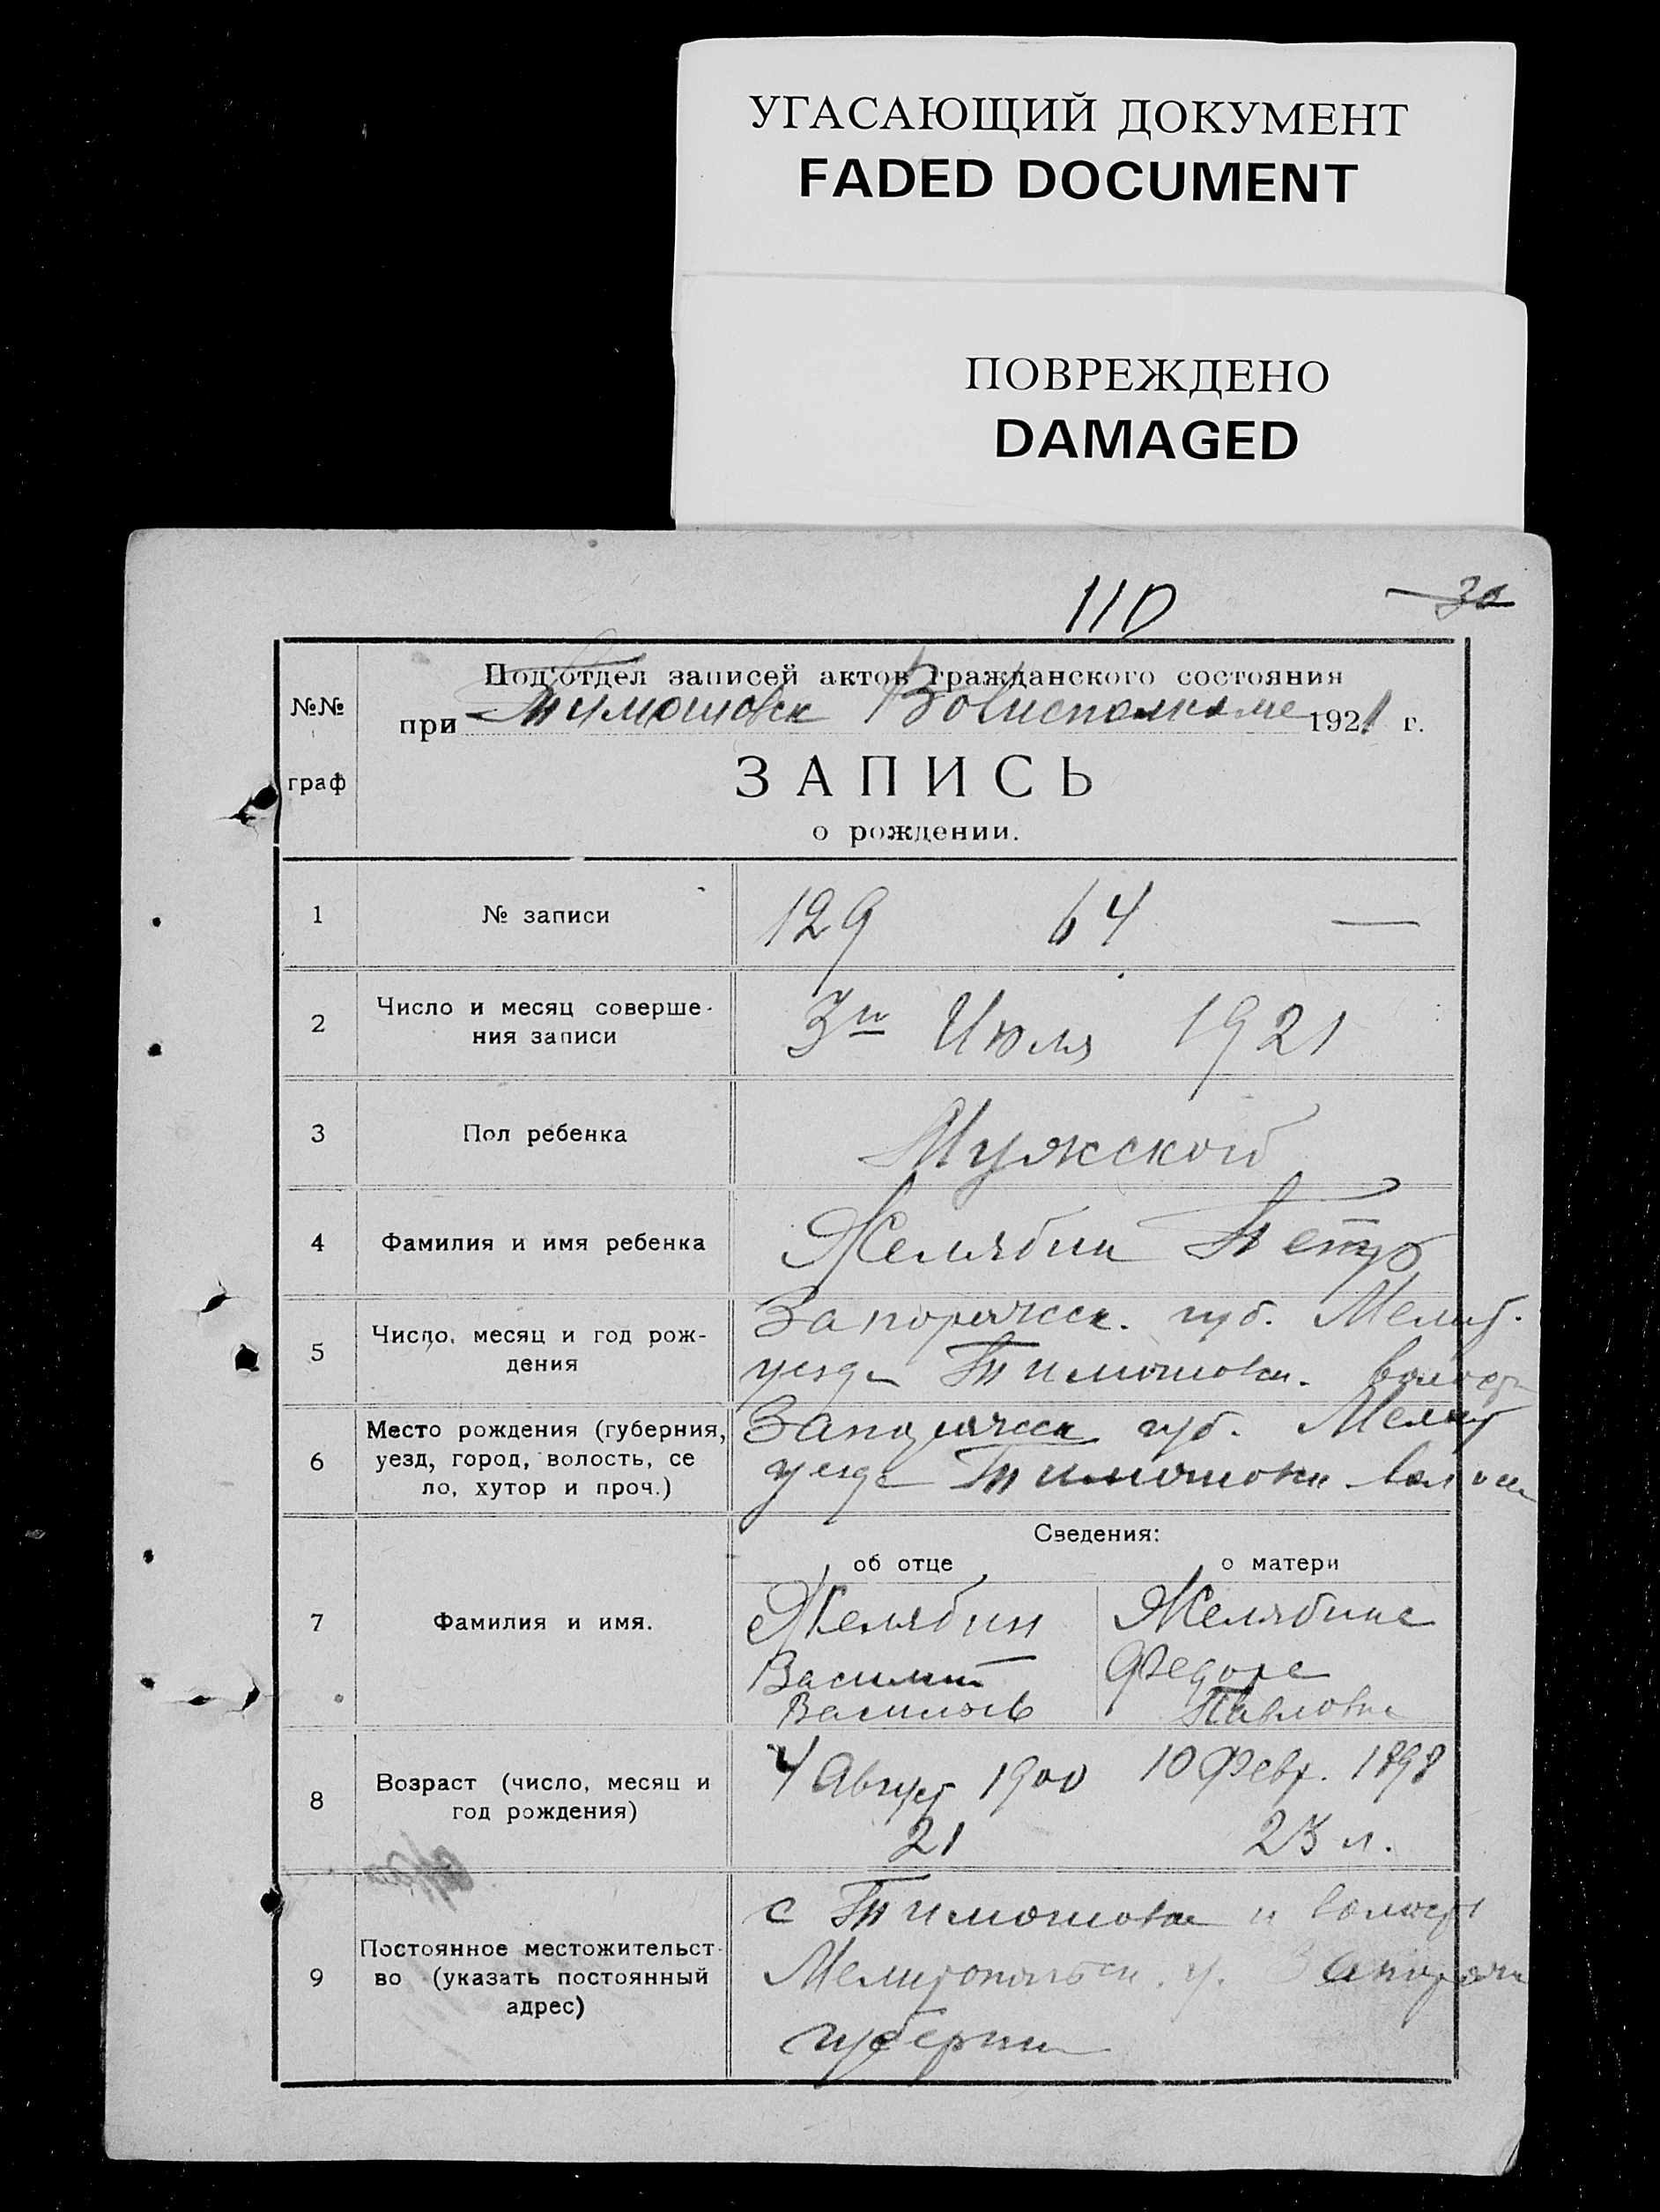 УГАСАЮЩИЙ ДОКУМЕНТ
FADED DOCUMENT
ПОВРЕЖДЕНО
DAMAGED
110
30
№№
граф
Под'отдел записей актов гражданского состояния
при Тимошовск Волисполкоме 1921 г.
ЗАПИСЬ
о рождении.
1 № записи 129 64 —
2 Число и месяц соверше-
ния записи
3го Июля 1921
3 Пол ребенка Мужской
4 Фамилия и имя ребенка Желябин Петр
5 Число, месяц и год рож-
дения
Запорожск. губ. Мелит.
уезда Тимошовск. волости
6 Место рождения (губерния,
уезд, город, волость, се
ло, хутор и проч.)
Запорожск губ. Мелит
уезда Тимошовк волости
Сведения:
об отце о матери
7 Фамилия и имя.
Желябин Желябина
Василий Федора
Васильев Павловна
8 Возраст (число, месяц и
год рождения)
4 Август 1900 10 Февр. 1898
21 23 л.
9 Постоянное местожительст-
во (указать постоянный
адрес)
с Тимошовка и волость
Мелитопольск. у. Запорож
губернии